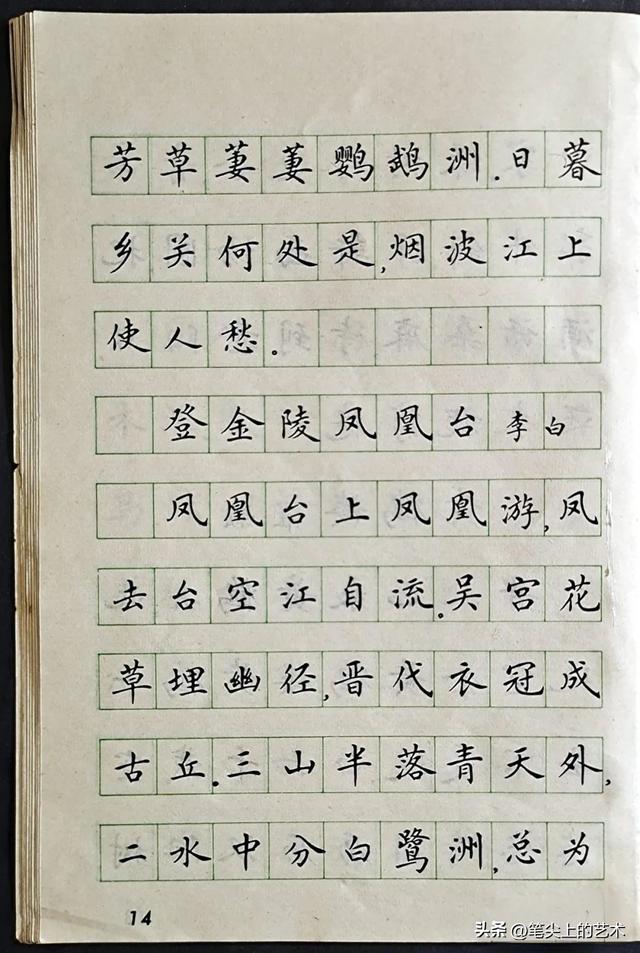 芳草萋萋鹦鹉洲.日暮
乡关何处是,烟波江上
使人愁.
登金陵凤凰台 李白
凤凰台上凤凰游,凤
去台空江自流.吴宫花
草埋幽径,晋代衣冠成
古丘.三山半落青天外,
二水中分白鹭洲,总为
14
头条 @笔尖上的艺术